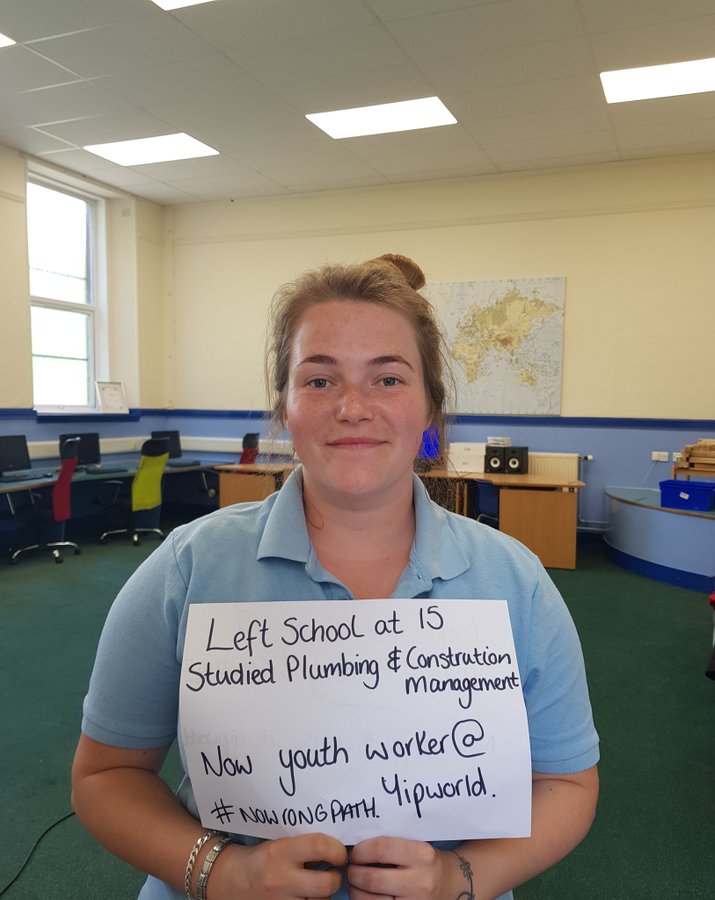 Left School at 15
Studied Plumbing & Constrution
Management
Now youth worker@
Yipworld.
#NOWRONGPATH.